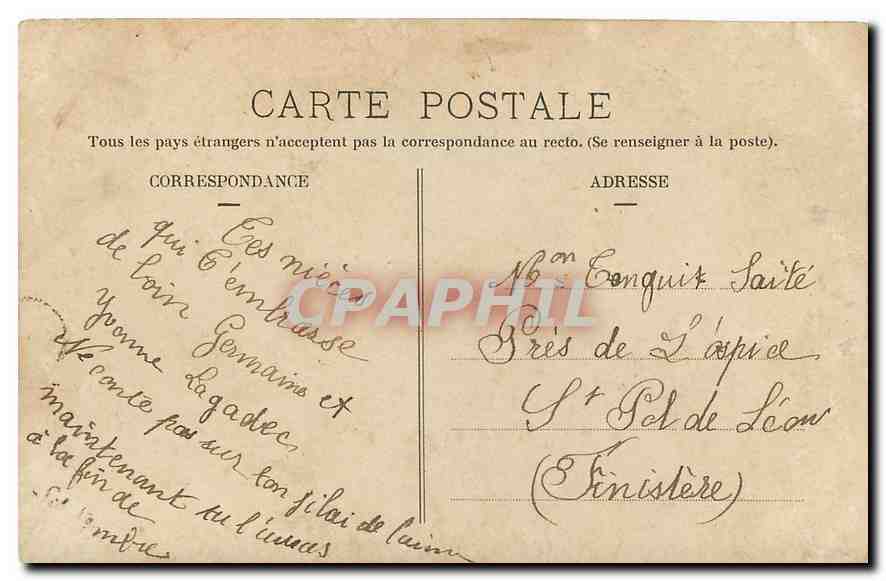 CARTE POSTALE
Tous les pays étrangers n'acceptent pas la correspondance au recto. (Se renseigner à la poste).
CORRESPONDANCE
Tes nièces
qui t'embrasse
de loin Germaine et
Yvonne Lagadec
Ne conte pas sur ton gilai de laine
maintenant tu l'auras
à la fin de
ADRESSE
Mon Tanguit Saité
Prés de L'ospice
St Pol de Léon
(Finistère)
CPAPHIL